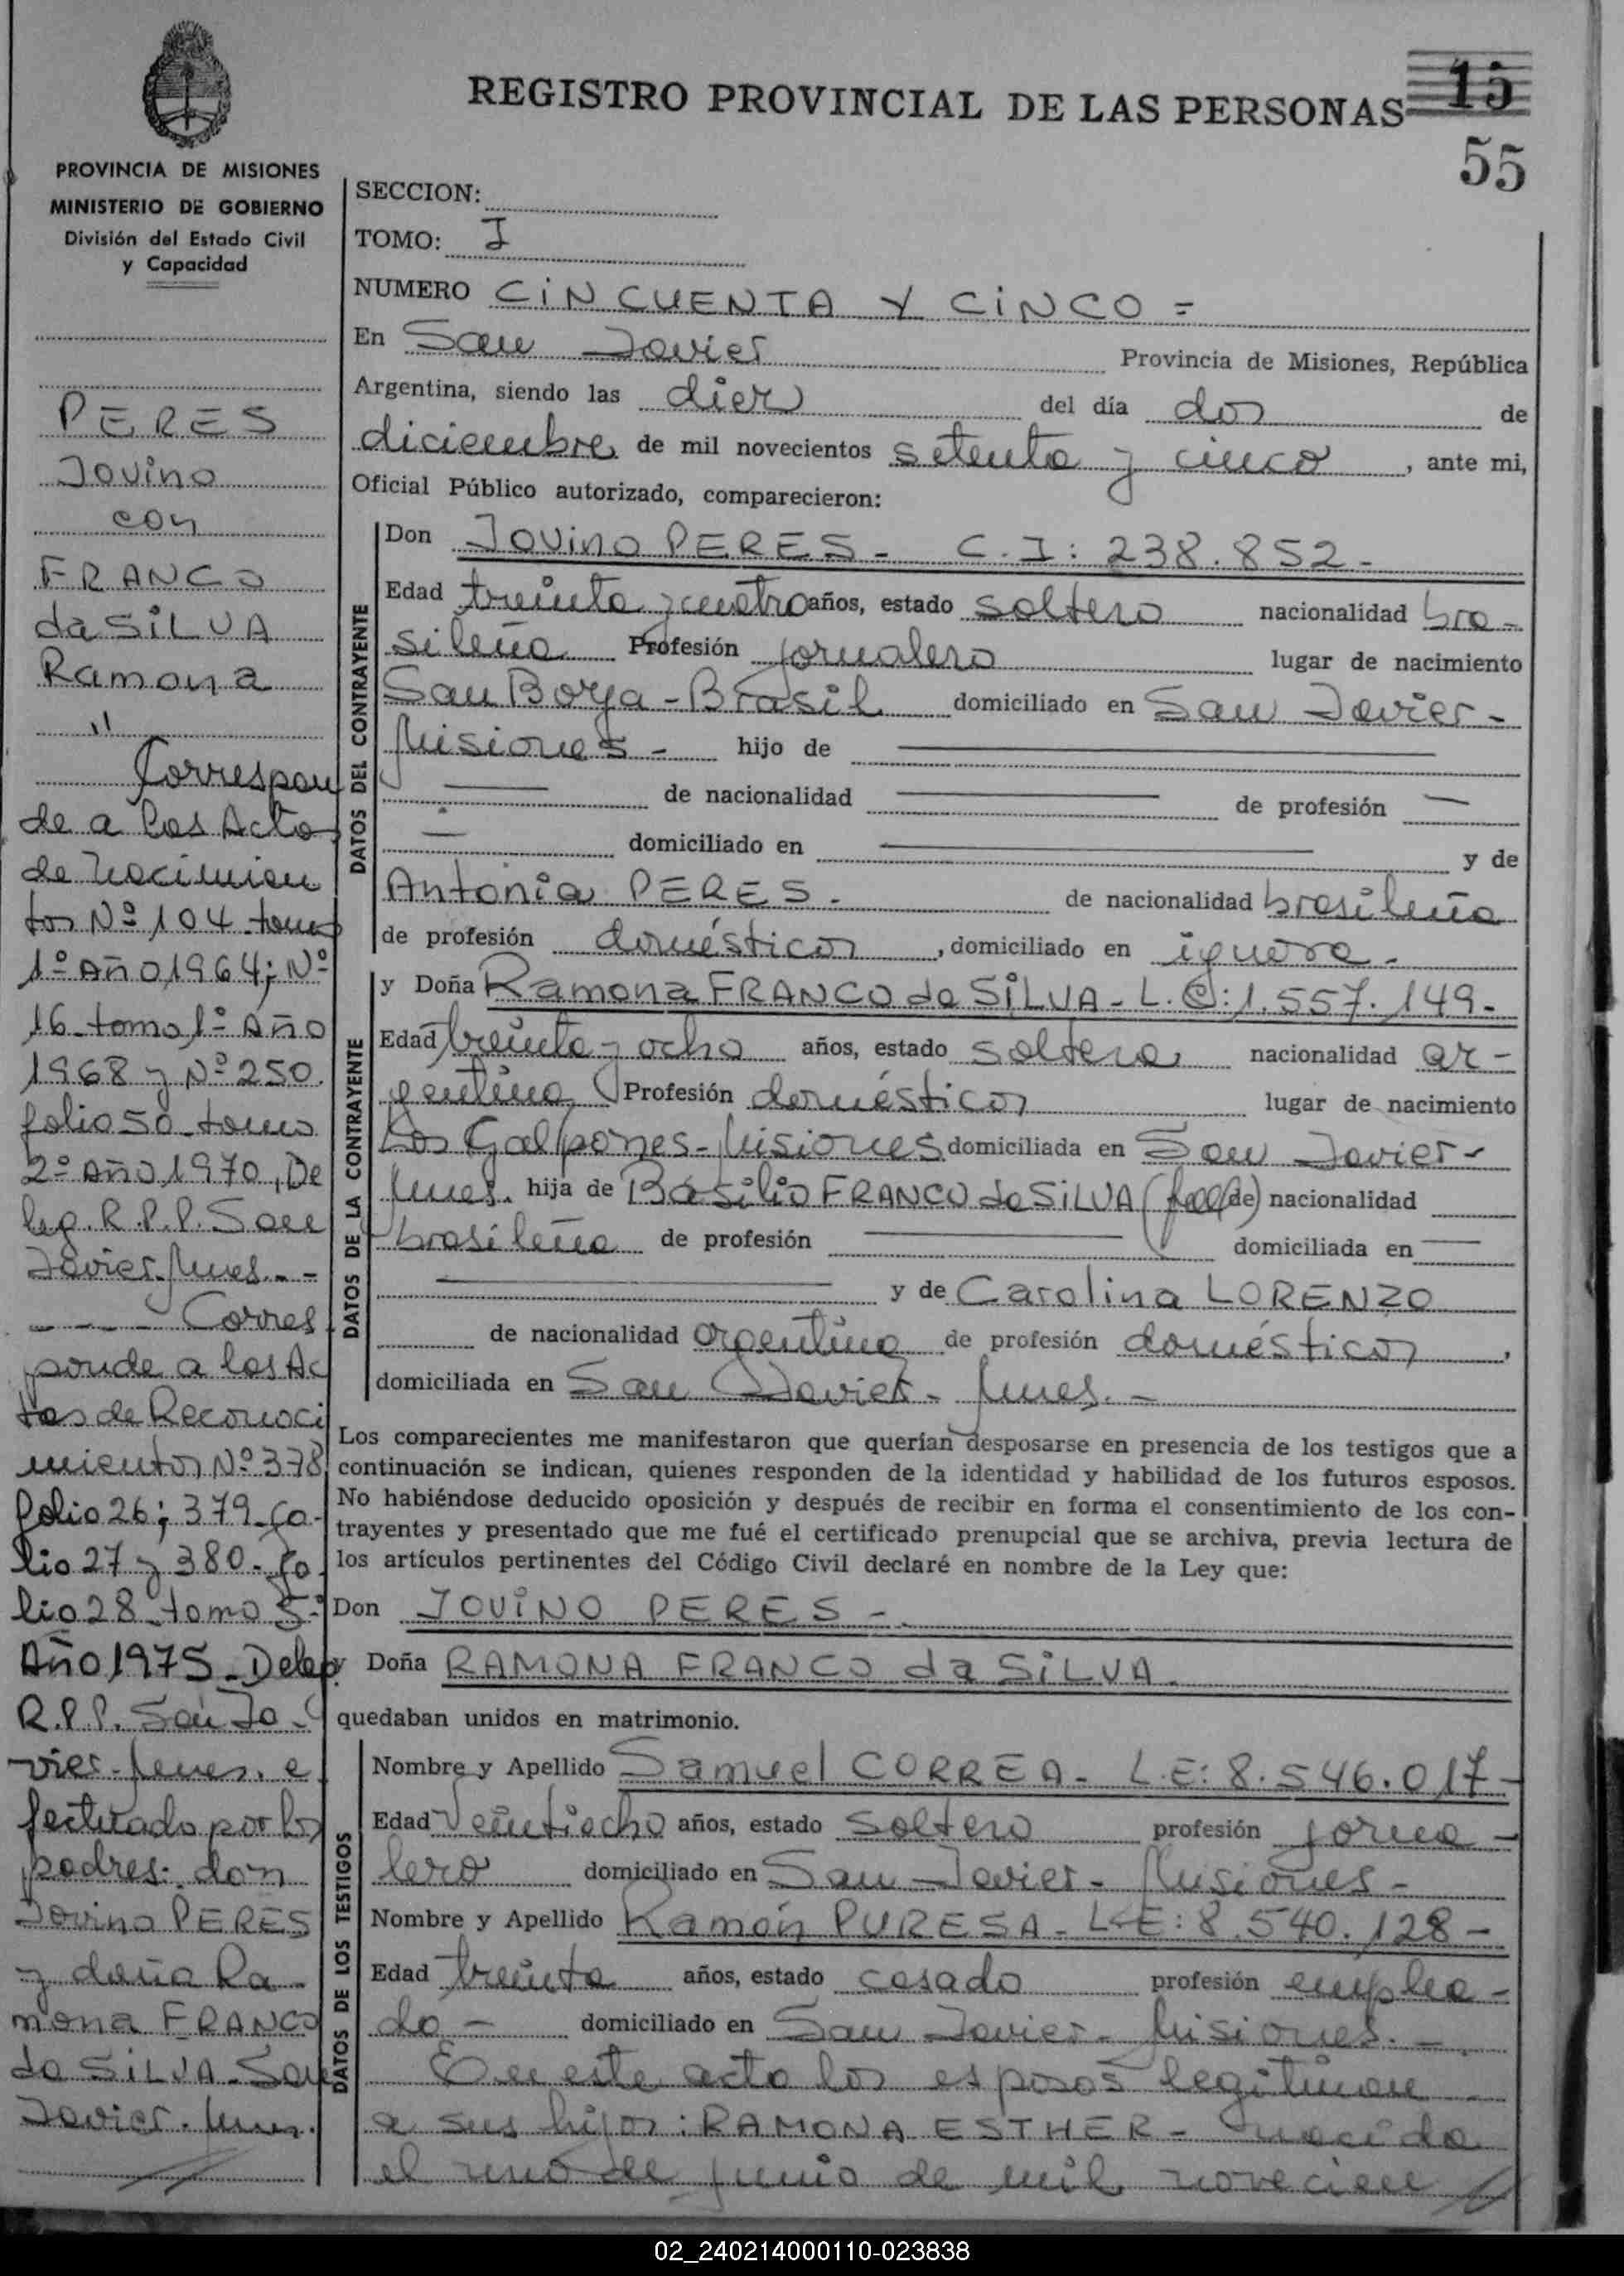 REGISTRO PROVINCIAL DE LAS PERSONAS
15
55
PROVINCIA DE MISIONES
MINISTERIO DE GOBIERNO
División del Estado Civil
y Capacidad
PERES
Jovino
con
FRANCO
da SILVA
Ramona
"
Correspon
de a las Actas
de Nacimien
tos Nº 104 tomo
1º Año 1964; Nº
16 tomo 1º Año
1968 y Nº 250
folio 50 tomo
2º Año 1970, De
leg. R.P.P. San
Javier Mnes. -
- - - Corres
ponde a las Ac
tas de Reconoci
mientos Nº 378
folio 26; 379 fo-
lio 27 y 380 - fo
lio 28 tomo 5º
Año 1975 - Deleg
R.P.P. San Ja -
vier - Mnes. e
fectuado por los
padres: don
Jovino PERES
y doña Ra -
mona FRANCO
da SILVA - San
Javier. Mnes.
SECCION:
TOMO: I
NUMERO CINCUENTA Y CINCO =
En San Javier Provincia de Misiones, República
Argentina, siendo las diez del día dos de
diciembre de mil novecientos setenta y cinco, ante mi,
Oficial Público autorizado, comparecieron:
DATOS DEL CONTRAYENTE
Don Jovino PERES - C.I: 238.852 -
Edad treinta y cuatro años, estado soltero nacionalidad bra -
sileña Profesión jornalero lugar de nacimiento
San Borja - Brasil domiciliado en San Javier -
Misiones - hijo de
de nacionalidad de profesión
domiciliado en y de
Antonia PERES - de nacionalidad brasileña
de profesión domésticos, domiciliado en ignora -
DATOS DE LA CONTRAYENTE
y Doña Ramona FRANCO da SILVA - L.C: 1.557.149 -
Edad treinta y ocho años, estado soltera nacionalidad ar -
gentina Profesión domésticos lugar de nacimiento
Los Galpones - Misiones domiciliada en San Javier -
Mnes. hija de Basilio FRANCO da SILVA (fall) de nacionalidad
brasileña de profesión domiciliada en
y de Carolina LORENZO
de nacionalidad argentina de profesión domésticos,
domiciliada en San Javier - Mnes. -
Los comparecientes me manifestaron que querían desposarse en presencia de los testigos que a
continuación se indican, quienes responden de la identidad y habilidad de los futuros esposos.
No habiéndose deducido oposición y después de recibir en forma el consentimiento de los con-
trayentes y presentado que me fué el certificado prenupcial que se archiva, previa lectura de
los artículos pertinentes del Código Civil declaré en nombre de la Ley que:
Don JOVINO PERES -
y Doña RAMONA FRANCO da SILVA
quedaban unidos en matrimonio.
DATOS DE LOS TESTIGOS
Nombre y Apellido Samuel CORREA - L.E: 8.546.017 -
Edad Veintiocho años, estado soltero profesión jorna -
lero domiciliado en San Javier - Misiones -
Nombre y Apellido Ramón PURESA - L.E: 8.540.128 -
Edad treinta años, estado casado profesión emplea -
do - domiciliado en San Javier - Misiones. -
En este acto los esposos legitiman
a sus hijos: RAMONA ESTHER - nacida
el uno de junio de mil novecien
02_240214000110-023838